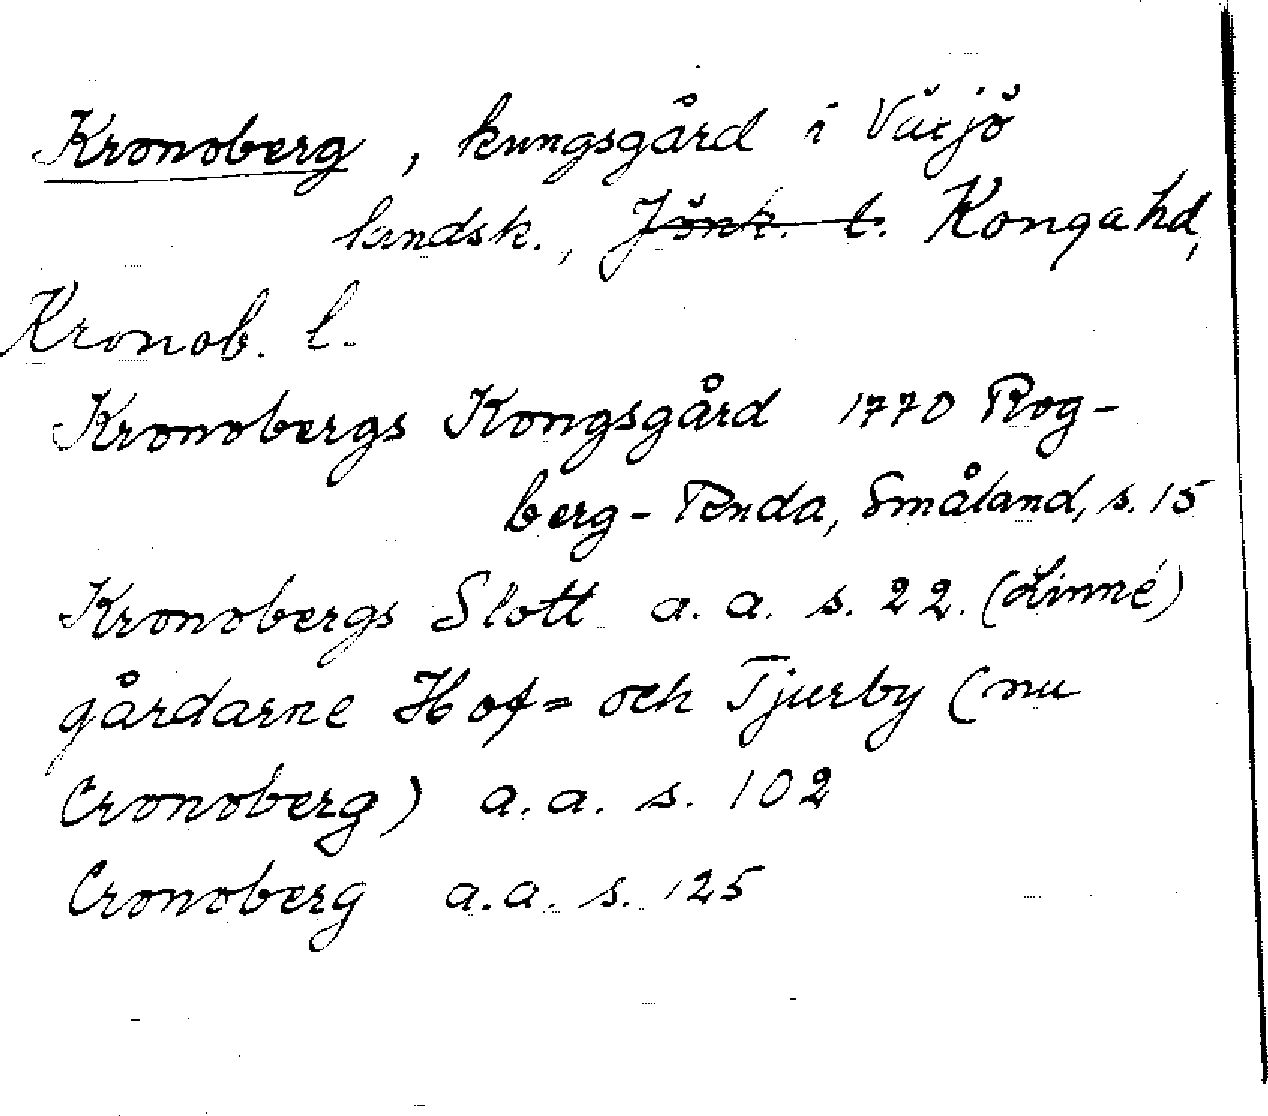 Kronoberg, kungsgård i Växjö
landsk., Jönk. l. Konga hd,
Kronob. l.
Kronobergs Kongsgård 1770 Rog-
berg-Ruda, Småland, s. 15
Kronobergs Slott a. a. s. 22. (Linné)
gårdarne Hof= och Tjurby (nu
Cronoberg) a. a. s. 102
Cronoberg a. a. s. 125